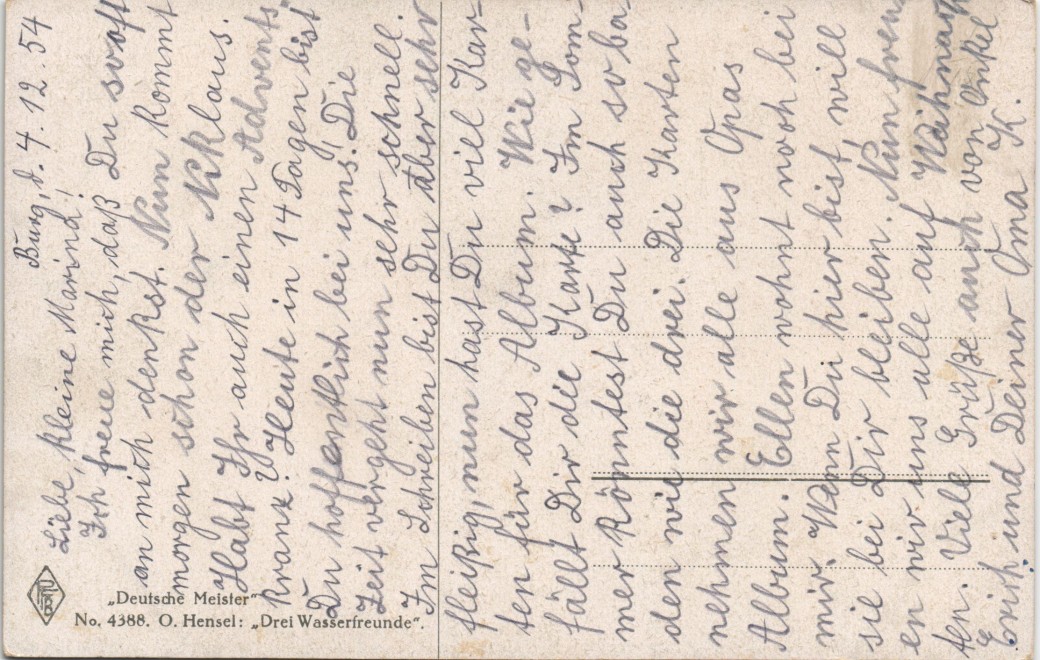 Burg, d. 4. 12. 54
Liebe, kleine Marina!
Ich freue mich, daß Du so oft
an mich denkst. Nun kommt
morgen schon der Niklaus.
Habt Ihr auch einen Advents-
kranz? Heute in 14 Tagen bist
Du hoffentlich bei uns. Die
Zeit vergeht nun sehr schnell.
Im Schreiben bist Du aber sehr
fleißig, nun hast Du viel Kar-
ten für das Album. Wie ge-
fällt Dir die Karte? Im Som-
mer könntest Du auch so ba-
den wie die drei. Die Karten
nehmen wir alle aus Opas
Album. Ellen wohnt noch bei
mir. Wenn Du hier bist, will
sie bei Dir bleiben. Nun freu-
en wir uns alle auf Weihnach-
ten. Viele Grüße auch von Onkel
Erich und Deiner Oma K.
„Deutsche Meister“
No. 4388. O. Hensel: „Drei Wasserfreunde“.